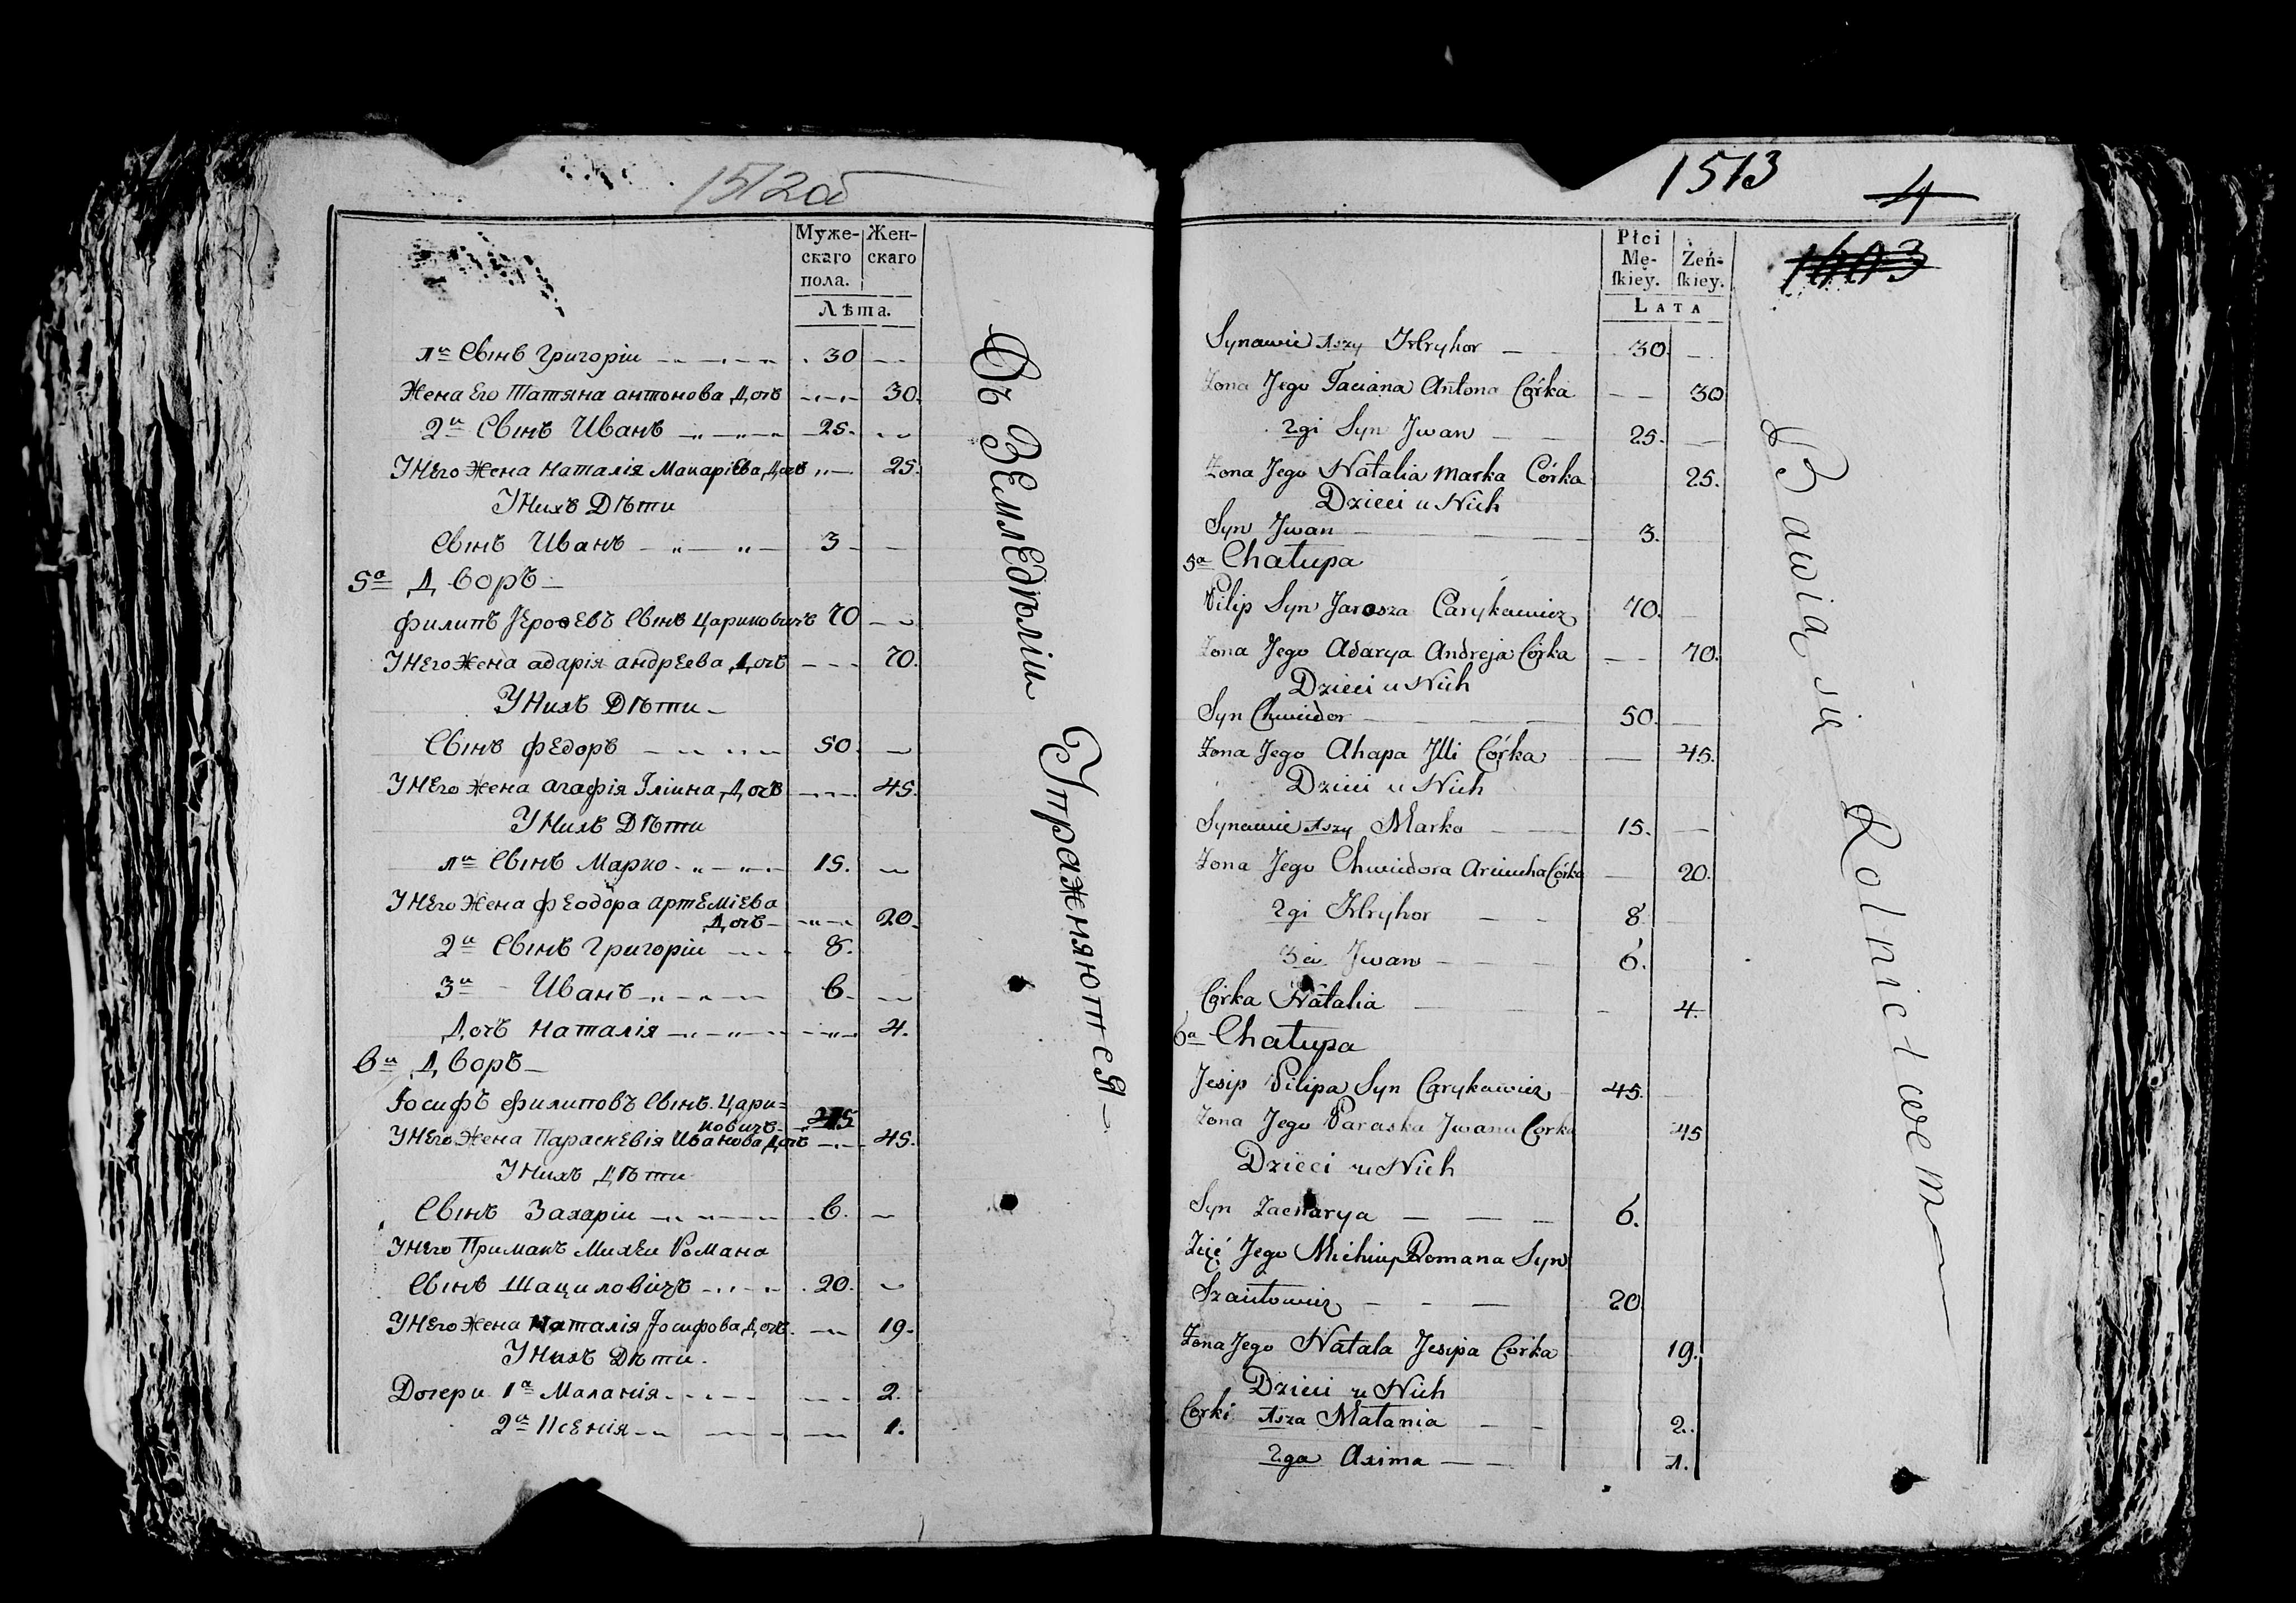 1512об
Муже-
скаго
пола.
Жен-
скаго
Лѣта.
1й Сынъ Григорій 30
Жена Его Татяна антонова Дочъ 30.
2й Сынъ Иванъ 25.
У Него Жена Наталія Макаріева Дочъ 25.
У Нихъ Дѣти
Сынъ Иванъ 3
5й Дворъ
филипъ Ерофевъ Сынъ Цариковичъ 70
У Него Жена адарія андреева Дочъ 70.
У Нихъ Дѣти
Сынъ федоръ 50.
У Него Жена агафія Іліина Дочъ 45.
У Нихъ Дѣти
1й Сынъ Марко 15.
У Него Жена феодора артеміева
Дочъ 20.
2й Сынъ Григорій 8.
3й Иванъ 6.
Дочъ Наталія 4.
6й Дворъ
Іосифъ Филиповъ Сынъ Цари=
ковичъ 45
У Него Жена Параскевія Иванова Дочъ 45.
У Нихъ Дѣти
Сынъ Захарій 6.
У Него Примакъ Михей Романа
Сынъ Шациловичъ 20.
У Него Жена Наталія Іосифова Дочъ 19.
У Нихъ Дѣти.
Дочери 1а Маланія 2.
2а Ксенія 1.
Въ Земледѣліи Упражняются
1513
4
1603
Płci
Mę-
ſkiey.
Żeń-
ſkiey.
LATA
Synowie 1szy Hryhor 30.
Zona Jego Taciana Antona Córka 30
2gi Syn Jwan 25.
Zona Jego Natalia Marka Córka 25.
Dzieci u Nich
Syn Jwan 3.
5a Chałupa
Pilip Syn Jarosza Carykawicz 70.
Zona Jego Adarya Andreja Córka 70.
Dzieci u Nich
Syn Chwiedor 50.
Zona Jego Ahapa Jlli Córka 45.
Dzieci u Nich
Synowie 1szy Marko 15.
Zona Jego Chwiedora Arciucha Córka 20.
2gi Hryhor 8
3ci Jwan 6.
Córka Natalia 4.
6a Chałupa
Jesip Pilipa Syn Carykawicz 45.
Zona Jego Paraska Jwana Corka 45
Dzieci u Nich
Syn Zacharya 6.
Zięć Jego Michiey Romana Syn
20
Zona Jego Natala Jesipa Córka 19.
Dzieci u Nich
Corki 1sza Małania 2.
2ga Axima 1.
Bawią się Rolnictwem